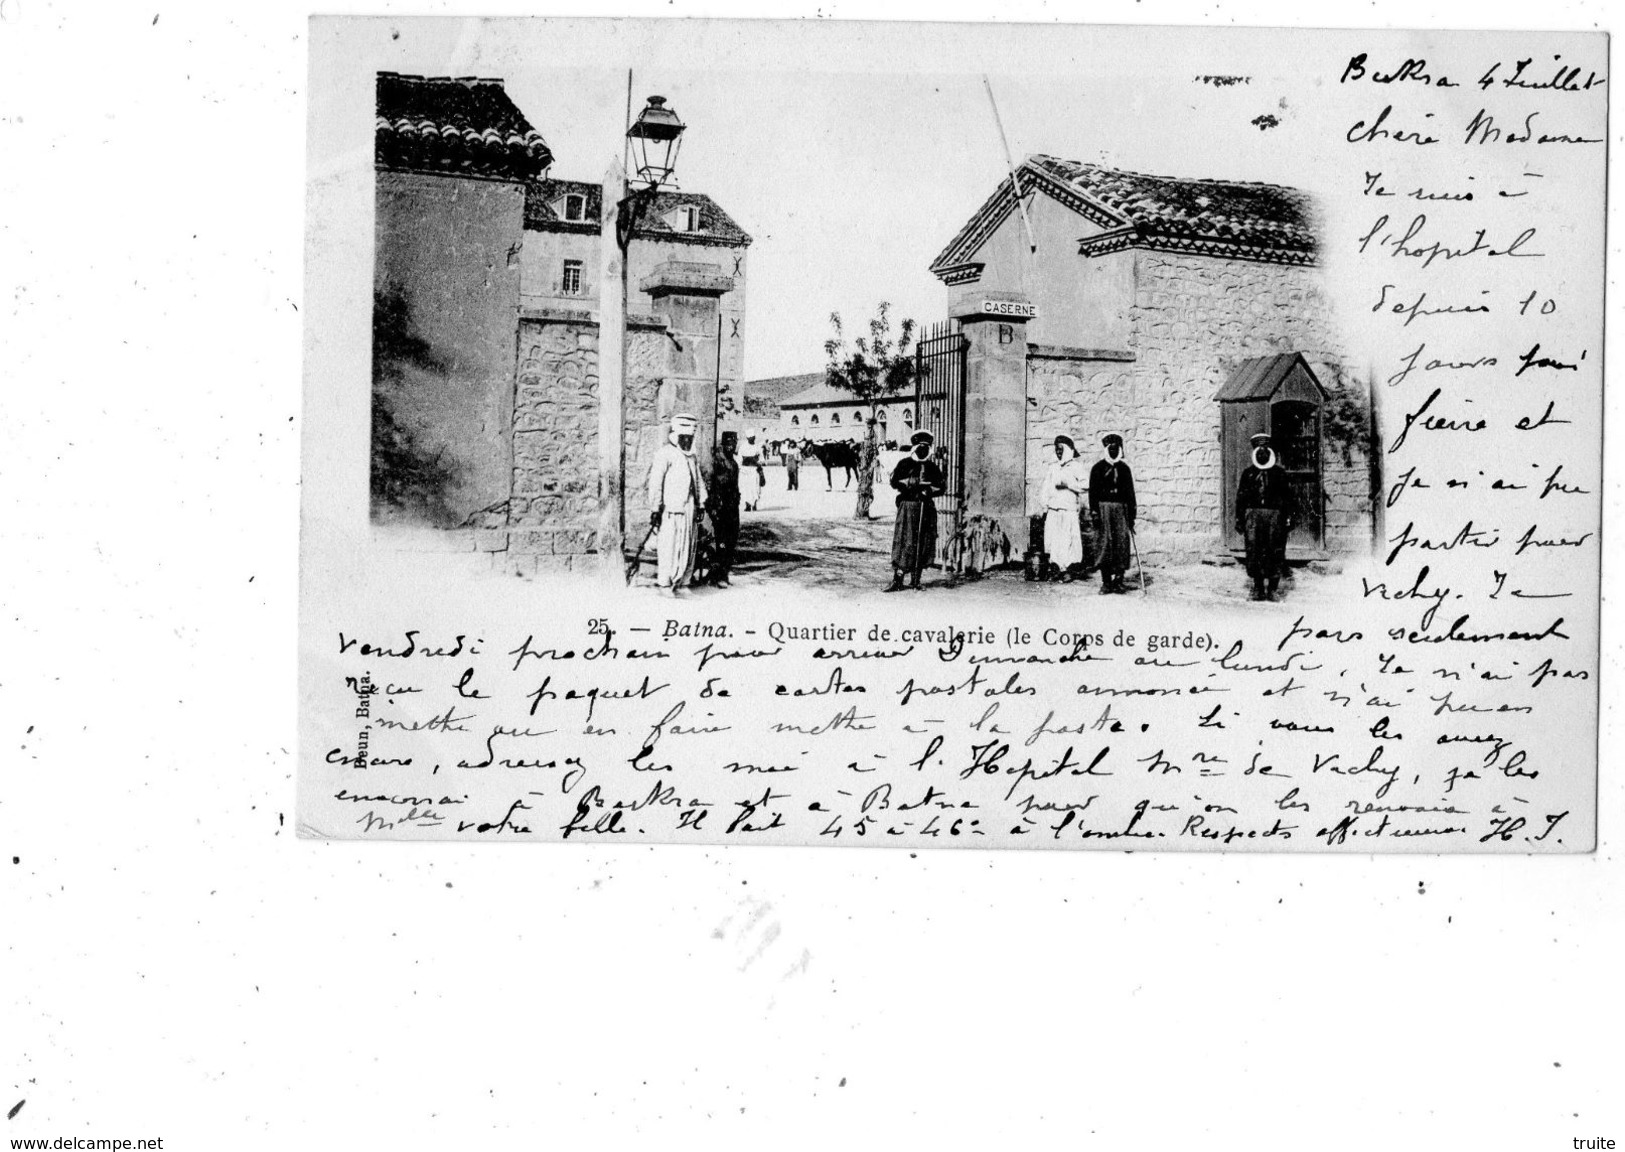 CASERNE
B
25. — Batna. - Quartier de cavalerie (le Corps de garde).
Beun, Batna.
Biskra 4 Juillet
chère Madame
Je suis à
l'hopital
depuis 10
jours pour
fièvre et
je n'ai pu
partir pour
Vichy. Je
pars seulement
vendredi prochain pour arriver Dimanche ou lundi. Je n'ai pas
reçu le paquet de cartes postales annoncé et n'ai pu en
mettre ou en faire mettre à la poste. Si vous les avez
encore, adressez les moi à l'Hopital Mre de Vichy, je les
enverrai à Biskra et à Batna pour qu'on les renvoie à
Melle votre fille. Il fait 45 à 46° à l'ombre. Respects affectueux H. J.
www.delcampe.net
truite